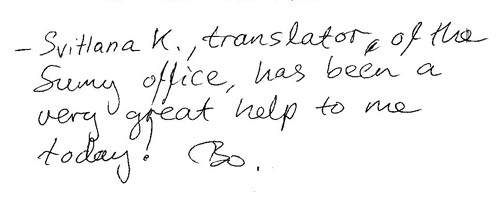 - Svitlana K., translator, of the
Sumy office, has been a
very great help to me
today! Bo.